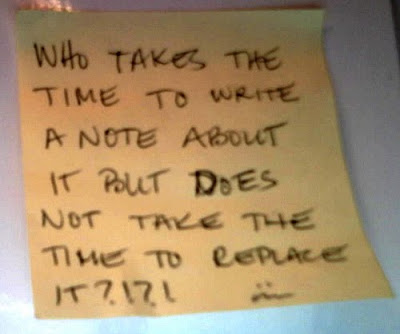 WHO TAKES THE
TIME TO WRITE
A NOTE ABOUT
IT BUT DOES
NOT TAKE THE
TIME TO REPLACE
IT?!?!